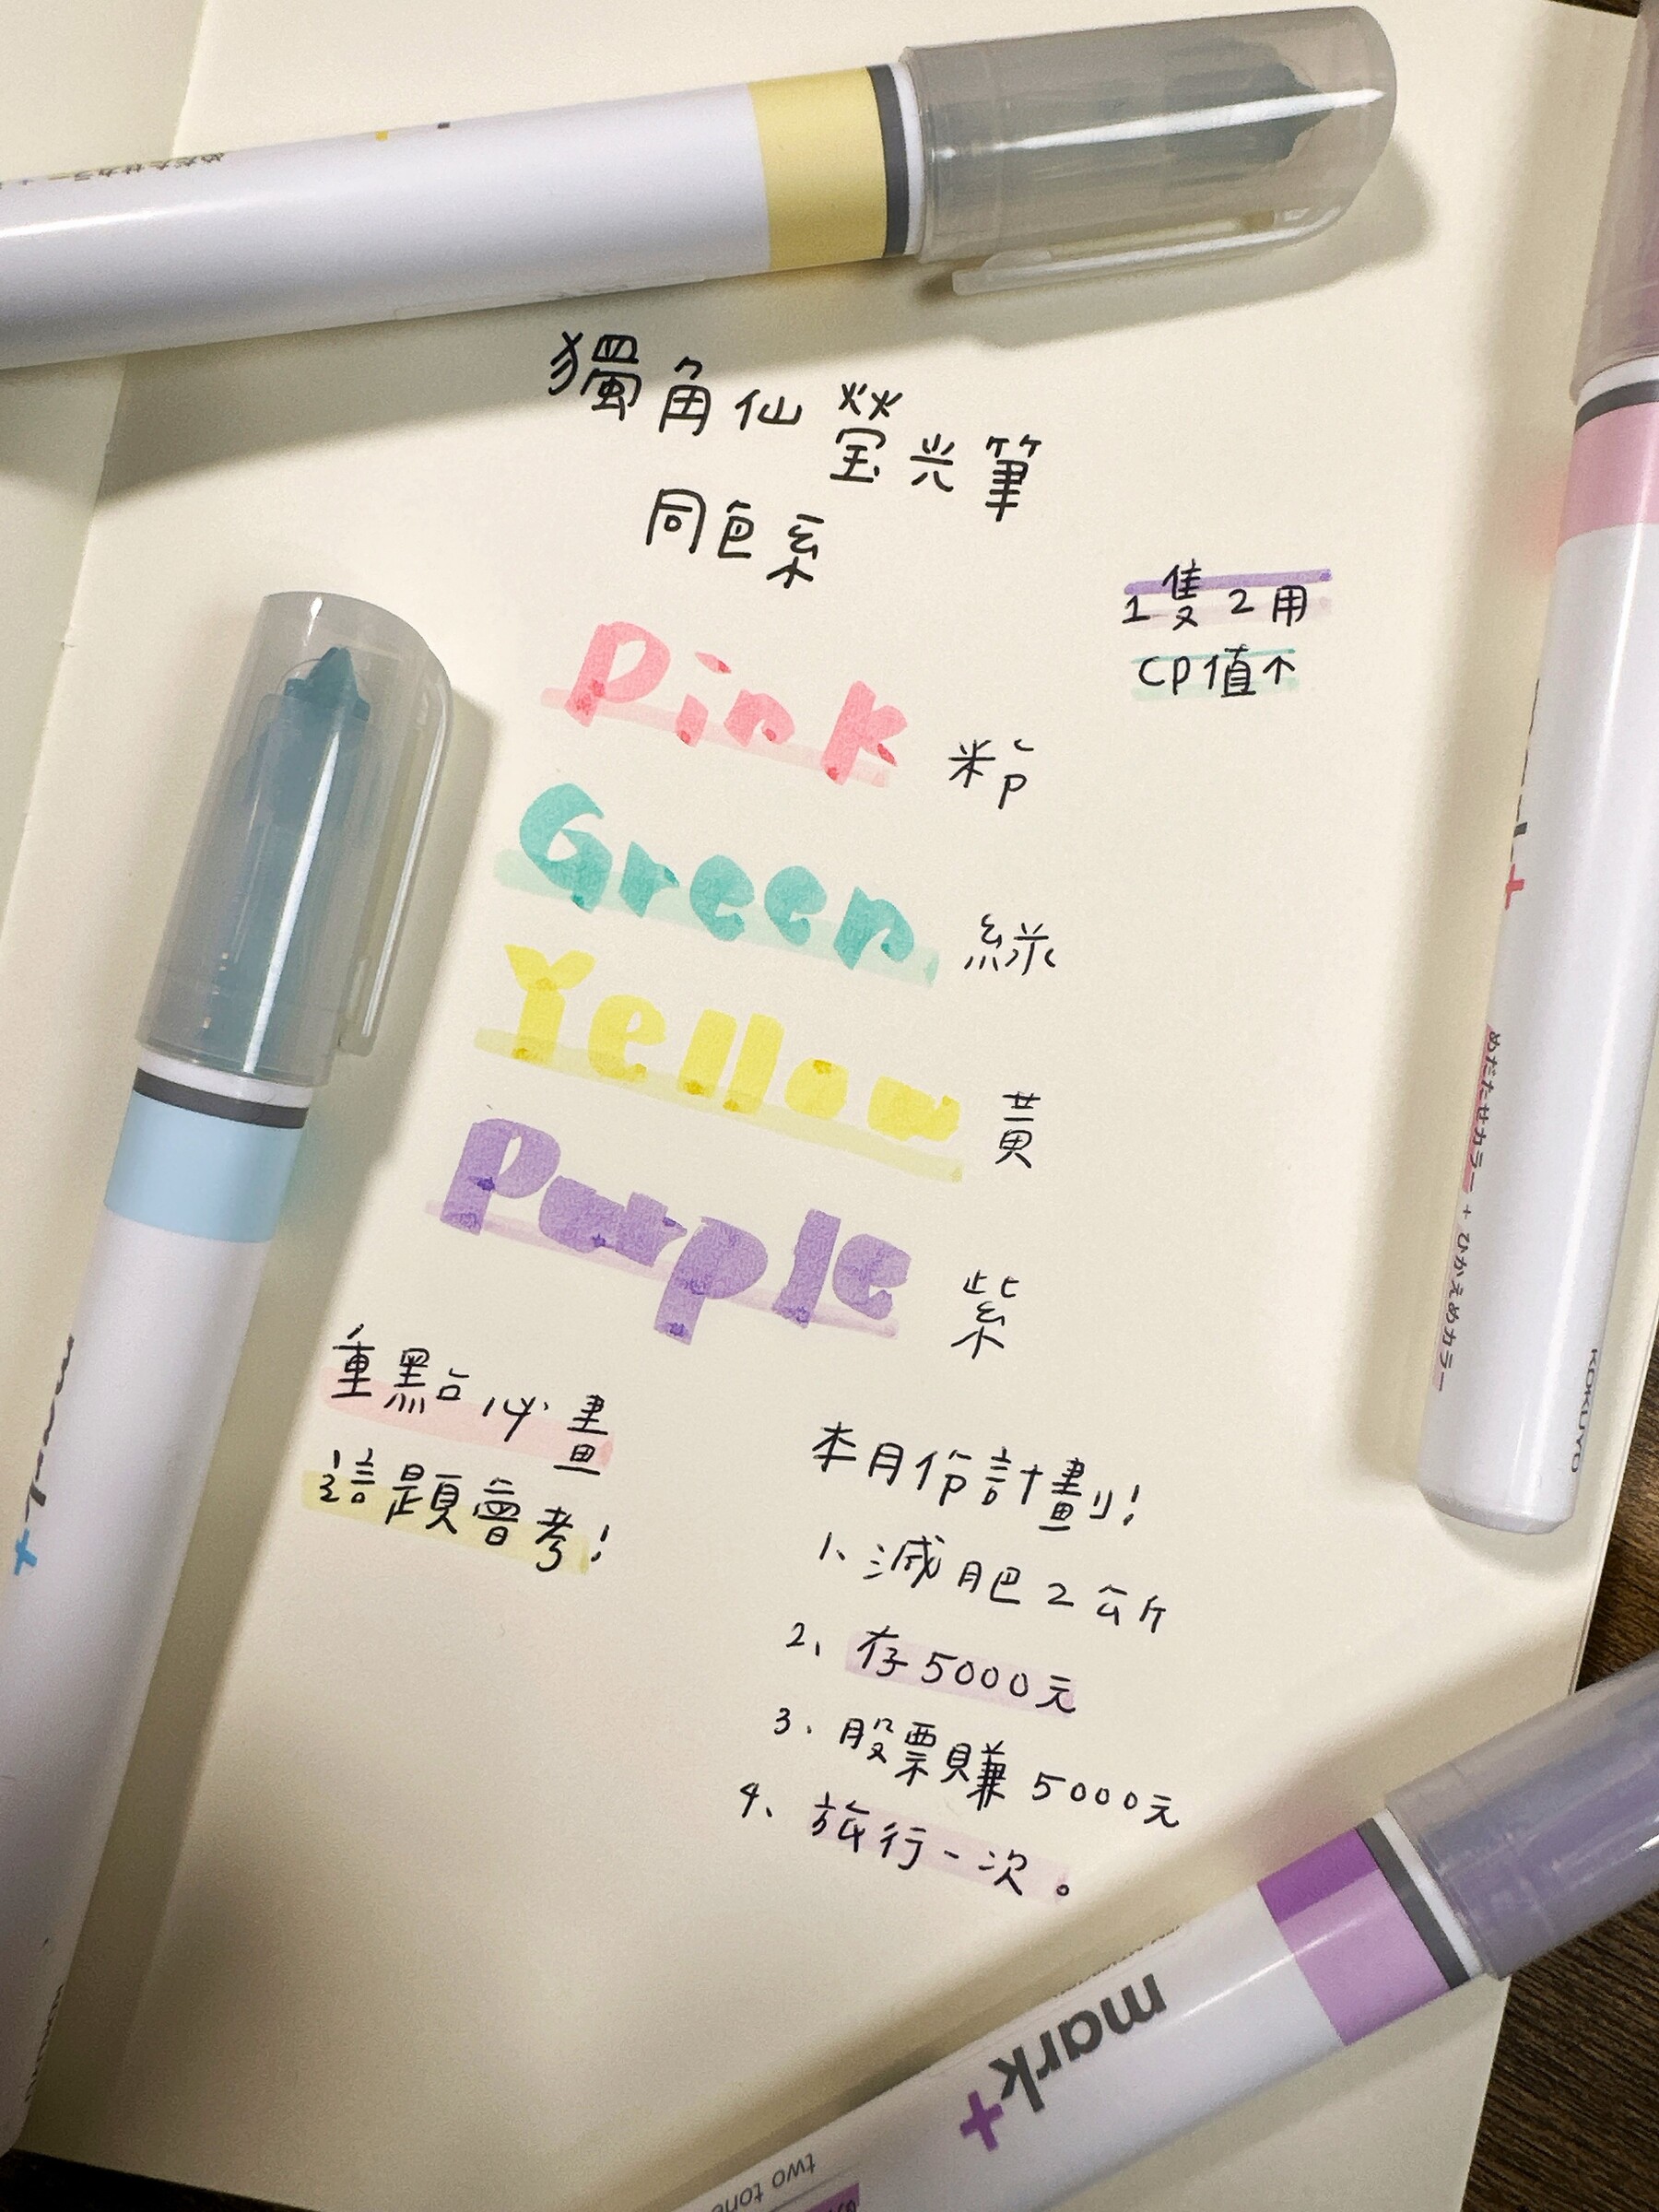 獨角仙螢光筆
同色系
1隻2用
CP值↑
Pink 粉
Green 綠
Yellow 黃
Purple 紫
重點必畫
這題會考!
本月份計劃!
1、減肥2公斤
2、存5000元
3、股票賺5000元
4、旅行一次。
めだたせカラー
mark+
めだたせカラー + ひかえめカラー
KOKUYO
mark+
mark+
two tone